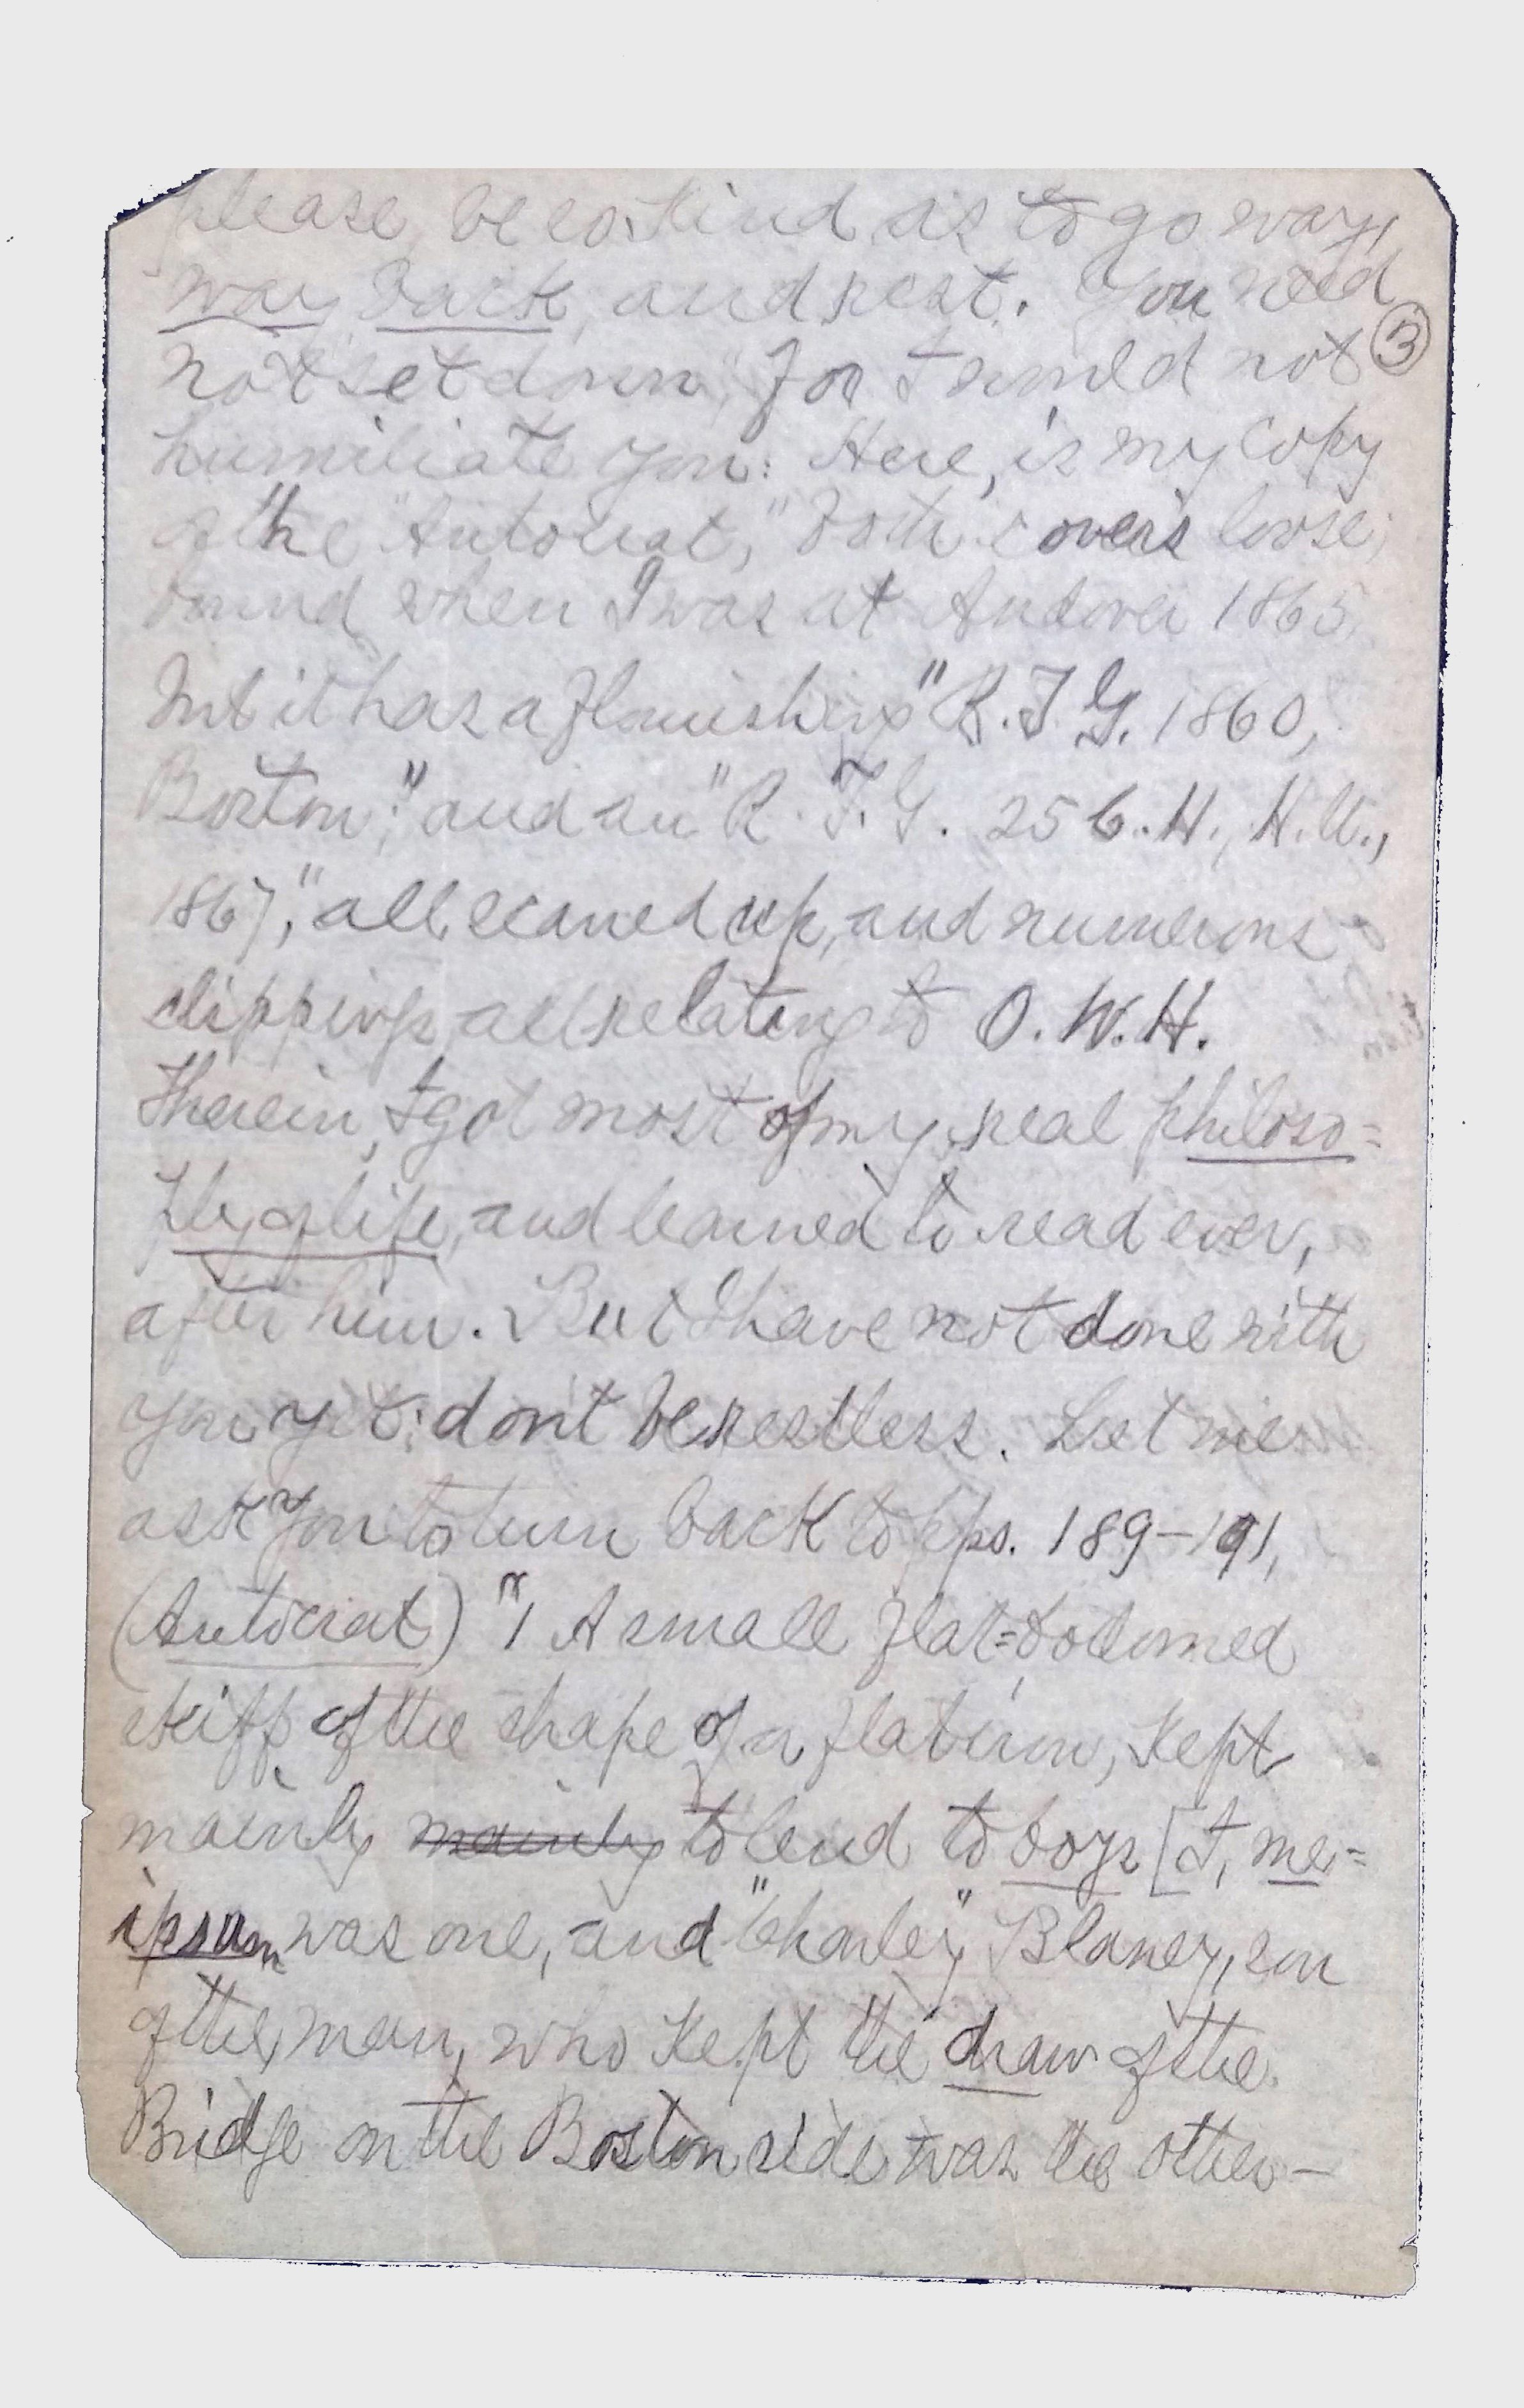 please, be so kind as to go way,
way back, and rest. You need
not "set down", for I would not
humiliate you: Here, is my copy
of the "Autocrat," both covers loose;
bound when I was at Andover 1865,
but it has a flourishing "R. F. G. 1860,
Boston;" and an "R. F. G. 25 C. H., H. U.,
1867," all scarred up, and numerous
clippings all relating to O. W. H.
Therein, I got most of my real philoso=
phy of life, and learned to read ever,
after him. But I have not done with
you yet: don't be restless. Let me
ask you to turn back to pps. 189–191,
(Autocrat) "1 A small flat=bottomed
skiff of the shape of a flatiron, kept
mainly mainly to lend to boys [I, me=
ipsum was one, and "Charley" Blaney, son
of the man, who kept the draw of the
Bridge on the Boston side was the other –
③